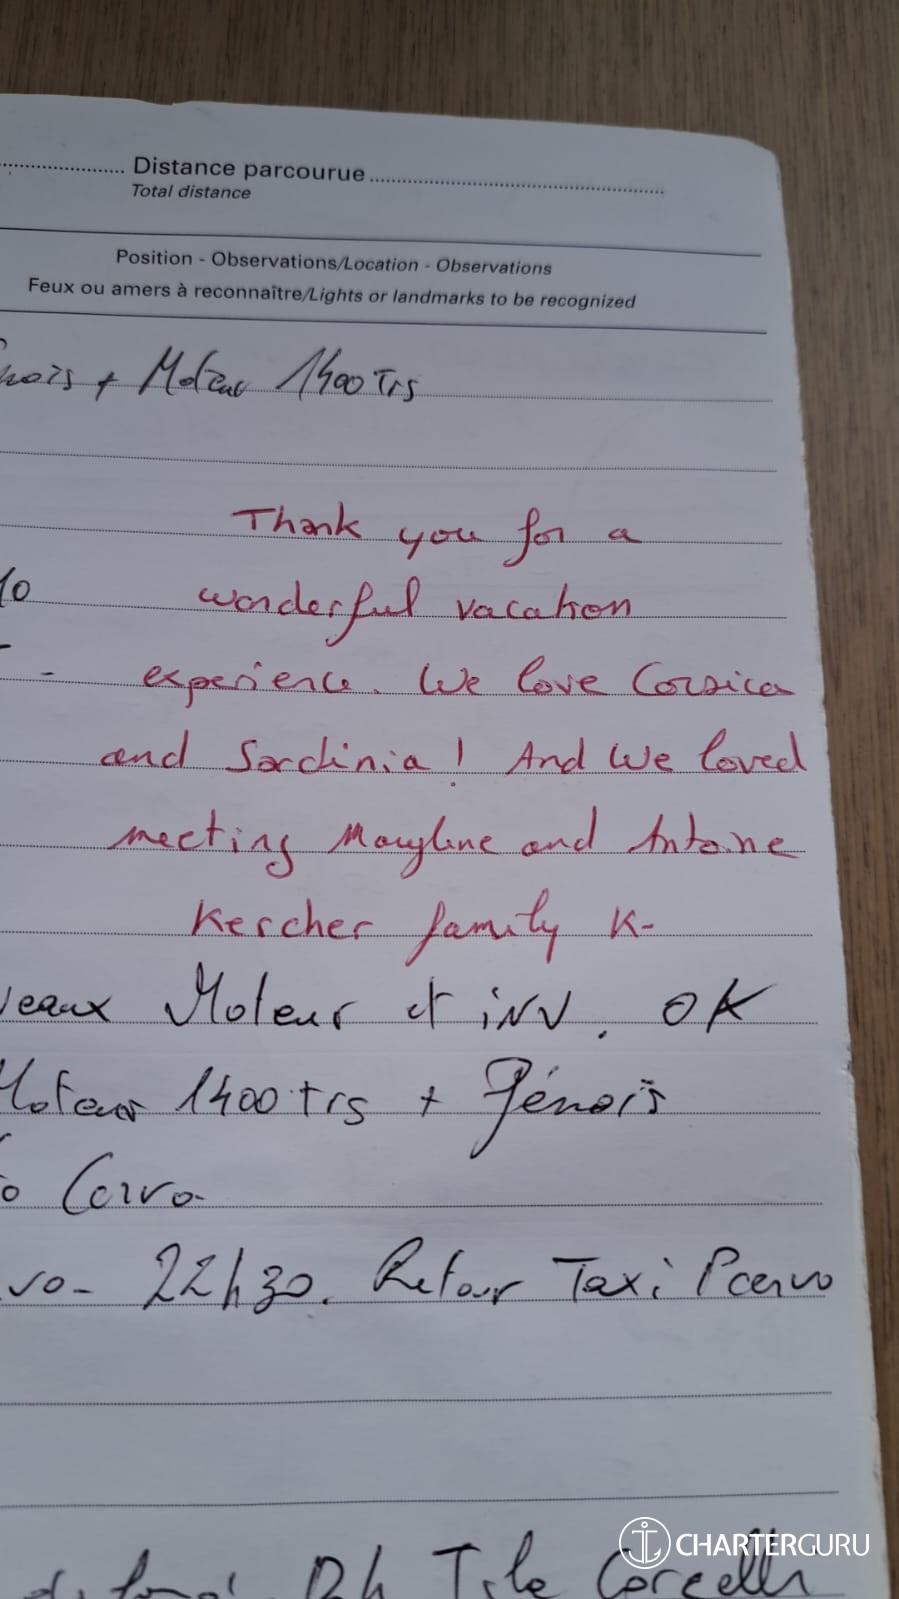 Distance parcourue
Total distance
Position - Observations/Location - Observations
Feux ou amers à reconnaître/Lights or landmarks to be recognized
+ Moteur 1400 Trs
Thank you for a
10
wonderful vacation
experience. We love Corsica
and Sardinia! And We loved
meeting Maryline and Antoine
Kercher family K-
Moteur et inv. OK
Moteur 1400 trs + Génois
Cervo
22h30. Retour Taxi Pcervo
CHARTERGURU